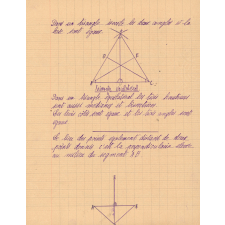 Dans un triangle isocèle les deux angles à la
base sont égaux.
Triangle équilatéral
Dans un triangle équilatéral les trois hauteurs
sont aussi médianes et bissectrices
Les trois côtés sont égaux et les trois angles sont
égaux
Le lieu des points également distants de deux
points donnés c'est la perpendiculaire élevée
au milieu du segment AB